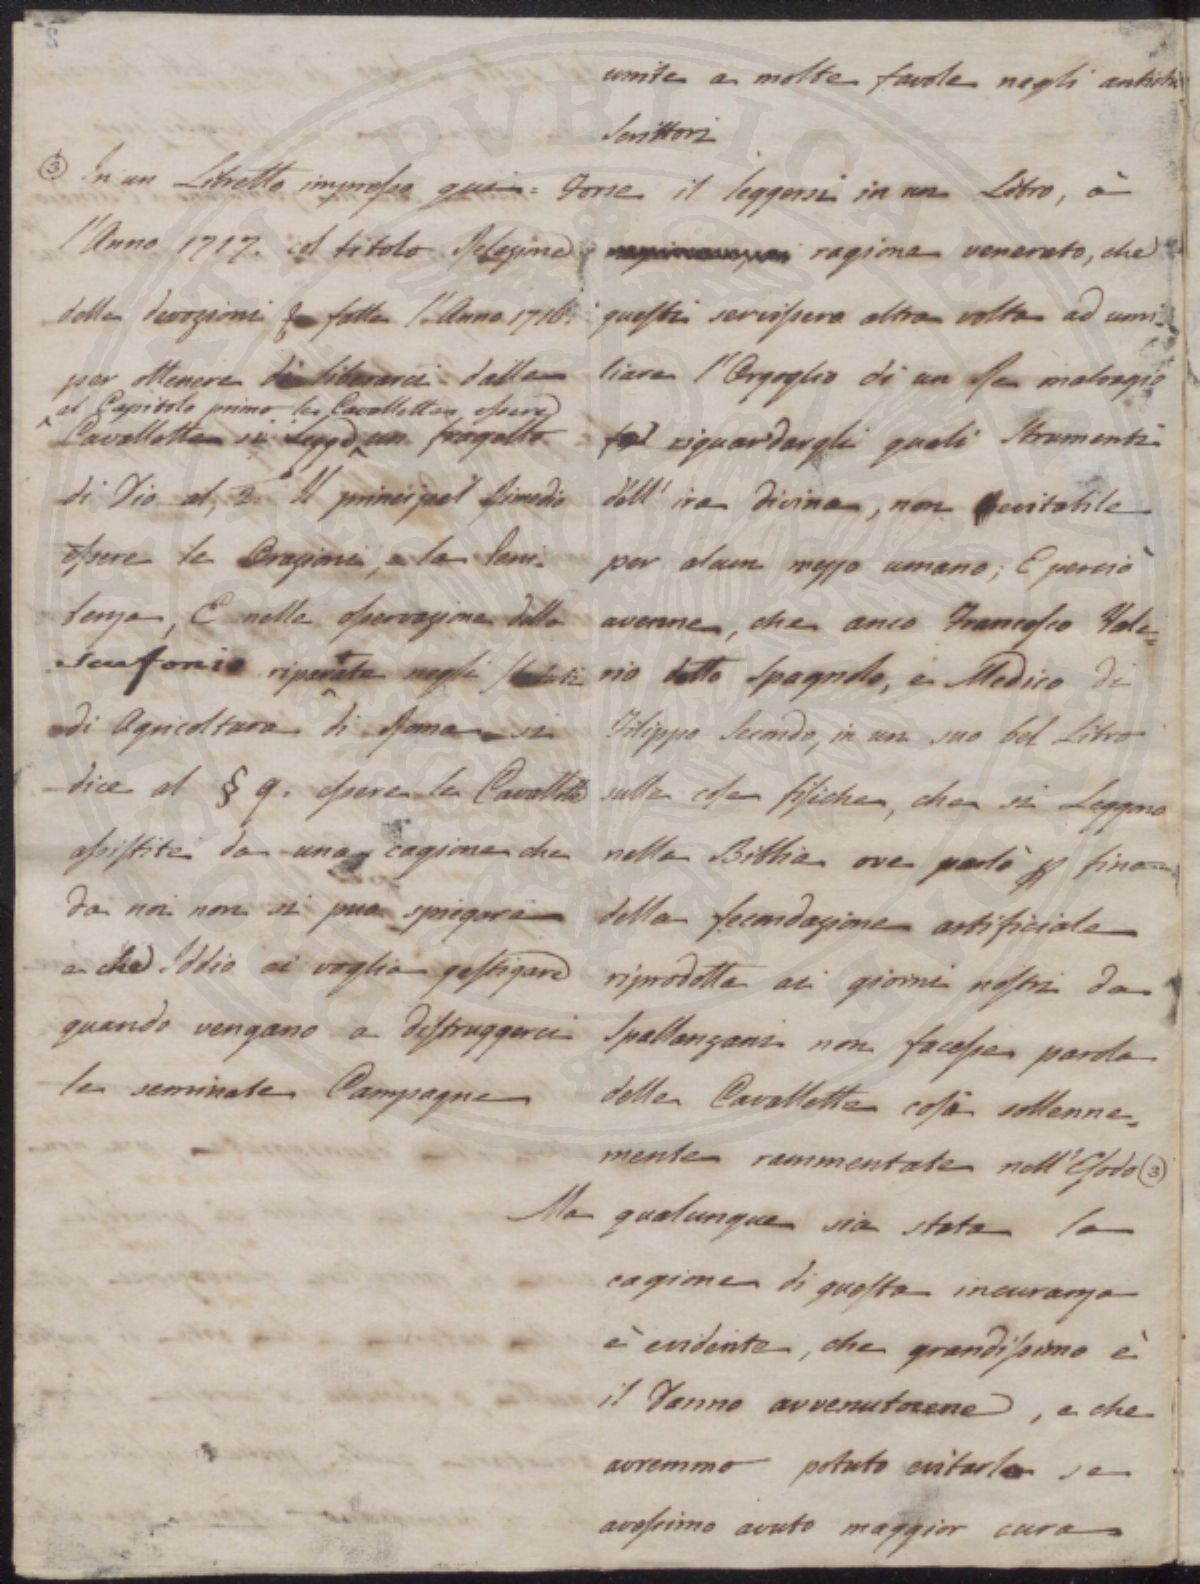 unite a molte favole negli antichi
Scrittori
Forse il leggersi in un Libro, à
ragione venerato, che
questi servissero altra volta ad umi=
liare l'Orgoglio di un Re malvagio
riguardargli quali Strumenti
dell' ira divina, non evitabile
per alcun mezzo umano; E perciò
avenne, che anco Francesco Vale=
rio detto Spagnolo, e Medico di
Filippo Secondo, in un suo bel Libro
sulle cose fisiche, che si Leggono
nella Bibbia ove parlò fino
della fecondazione artificiale
riprodotta ai giorni nostri da
Spallanzani non facesse parola
delle Cavallette così sollenne=
mente rammentate nell'Esodo (3)
Ma qualunque sia stata la
cagione di questa incuranza
è evidente, che grandissimo è
il Danno avvenutocene, e che
avremmo potuto evitarlo se
avessimo avuto maggior cura
(3) In un Libretto impresso qui =
l'Anno 1717. col titolo Relazione
delle devozioni fatte l'Anno 1716.
per ottenere di liberarci dalle
al Capitolo primo le Cavallette essere
Cavallette si legge un fragello
di Dio al 2.° Il principal Rimedio
essere le Orazioni, e la Peni=
tenza, E nelle osservazione delle
riportate negli
di Agricoltura di Roma si
dice al § 9. essere le Cavallette
assistite da una cagione che
da noi non si può spiegare
e che Iddio ci voglia gastigare
quando vengano a distruggerci
le seminate Campagne